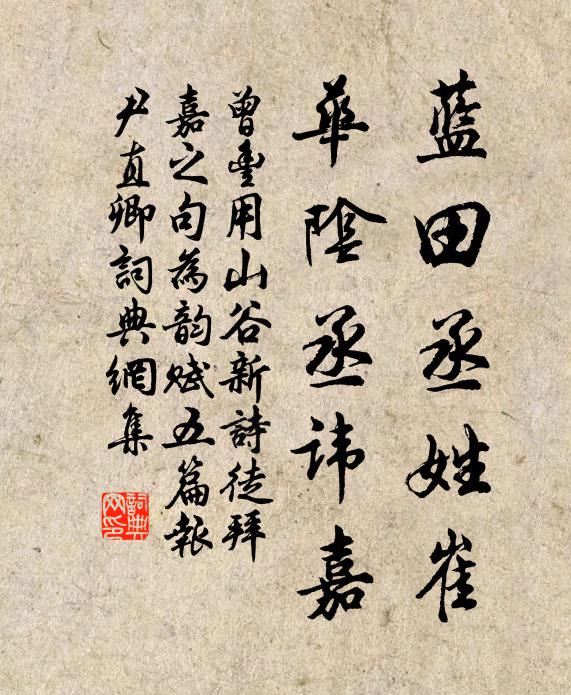 藍田丞姓崔
華陰丞諱嘉
曾豐用山谷新詩徒拜
嘉之句為韵賦五篇報
尹直卿詞典網集
詞典网印